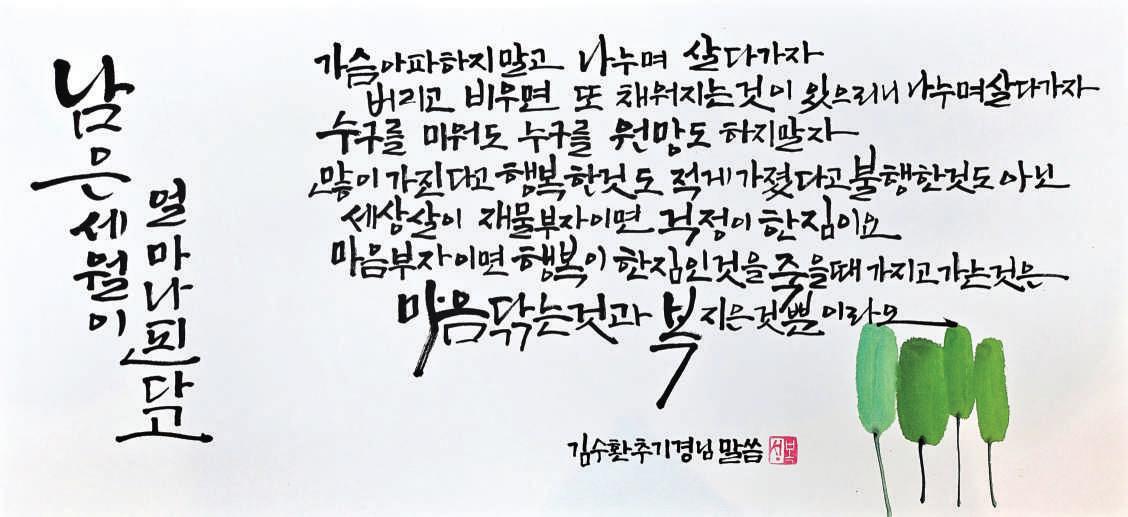 남은세월이
얼마나된다고
가슴아파하지말고 나누며 살다가자
버리고 비우면 또 채워지는것이 있으리니 나누며살다가자
누구를 미워도 누구를 원망도 하지말자
많이가진다고 행복한것도 적게가졌다고불행한것도아닌
세상살이 재물부자이면 걱정이한짐이요
마음부자이면행복이한짐인것을죽을때가지고가는것은
마음닦는것과 복지은것뿐이라오
김수환추기경님말씀
성복